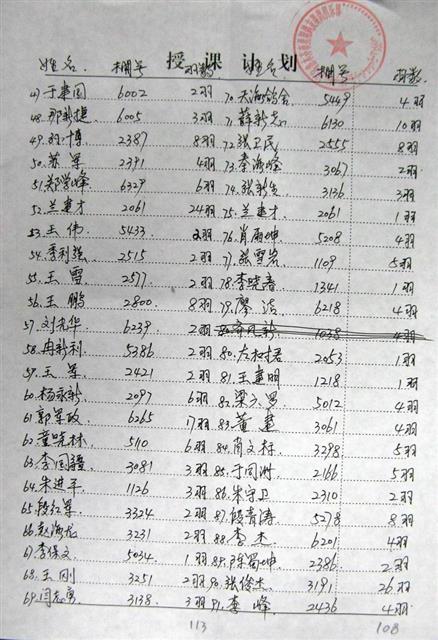 授 课 计 划
姓名 棚号 羽数 姓名 棚号 羽数
47 于建国 6002 2羽 70. 天海鸽舍 5449 4羽
48. 那新捷 6005 3羽 71. 薛新志 6130 10羽
49. 羽·博 2387 8羽 72. 张卫民 2555 8羽
50. 苏军 2391 4羽 73. 秦海峰 3067 2羽
51. 郑学峰 6329 6羽 74. 张新生 3136 3羽
52. 兰建才 2061 24羽 75. 兰建才 2061 1羽
53. 王伟 5433 2羽 76. 肖雨坤 5208 4羽
54. 季利强 2515 2羽 77. 苏雪岩 1109 5羽
55. 王雪 2577 2羽 78. 李晓春 1341 1羽
56. 王鹏 2800 8羽 79. 廖洁 6218 4羽
57. 刘光华 6239 2羽 1038 4羽
58. 冉新利 5386 2羽 80. 左和君 2053 1羽
59. 王军 2421 2羽 81. 王建明 1218 1羽
60. 杨永新 2097 6羽 82. 梁六男 5012 4羽
61. 郭军政 6265 17羽 83. 董建 3061 4羽
62. 董晓林 5110 6羽 84. 肖文存 3298 5羽
63. 李国疆 3081 3羽 85. 于同洲 2166 5羽
64. 朱进平 1126 3羽 86. 朱守卫 2310 2羽
65. 段红军 3324 2羽 87. 段青涛 5278 8羽
66. 赵海龙 3231 2羽 88. 李杰 6201 4羽
67. 李保文 5034 1羽 89. 陈蜀坤 2386 2羽
68. 王刚 3251 2羽 90. 张俊杰 3191 26羽
69. 闫志勇 3138 3羽 91. 李峰 2436 4羽
113 108